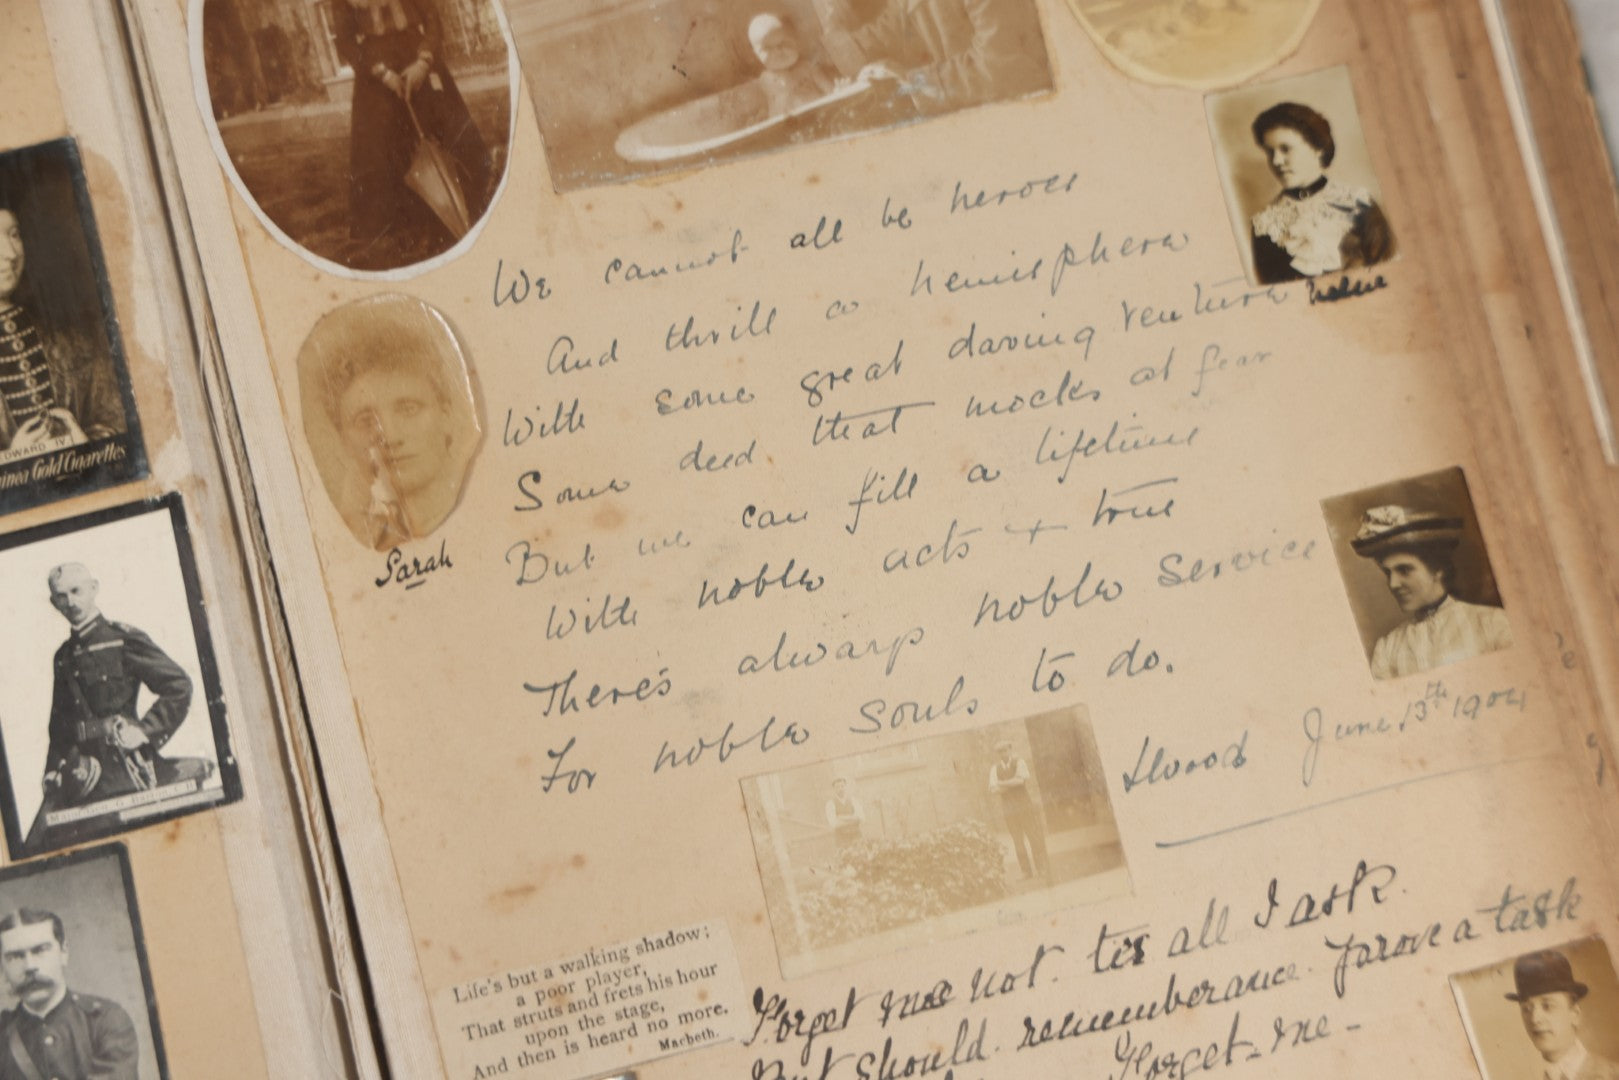 EDWARD IV
Guinea Gold Cigarettes
We cannot all be heroes
And thrill a hemisphere
With some great daring venture
Some deed that mocks at fear
But we can fill a lifetime
With noble acts + true
There's always noble service
For noble souls to do.
June 13th 1904
Nellie
Sarah
Life's but a walking shadow;
a poor player,
That struts and frets his hour
upon the stage,
And then is heard no more.
Macbeth.
Forget me not. tis all I ask.
But should. remembrance. prove a task
Forget-me-